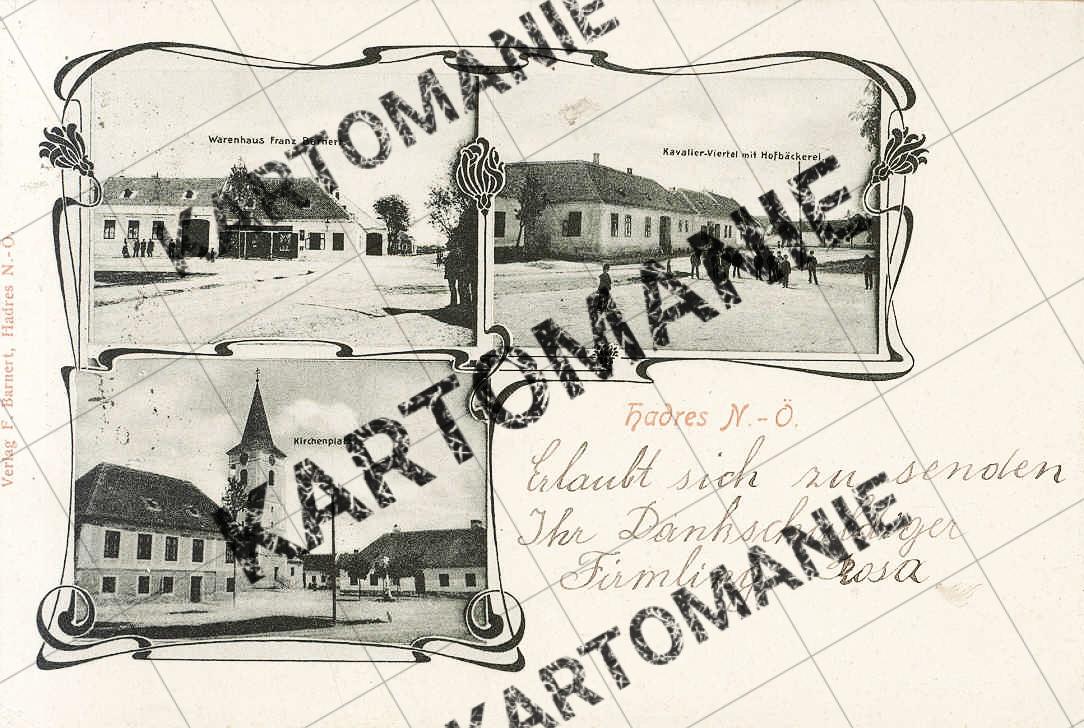 Warenhaus Franz Barnert
Kavalier-Viertel mit Hofbäckerei
Kirchenplatz
Hadres N.-Ö.
Erlaubt sich zu senden
Ihr Dankschuldiger
Firmling Rosa
Verlag F. Barnert, Hadres N.-Ö.
KARTOMANIE
KARTOMANIE
KARTOMANIE